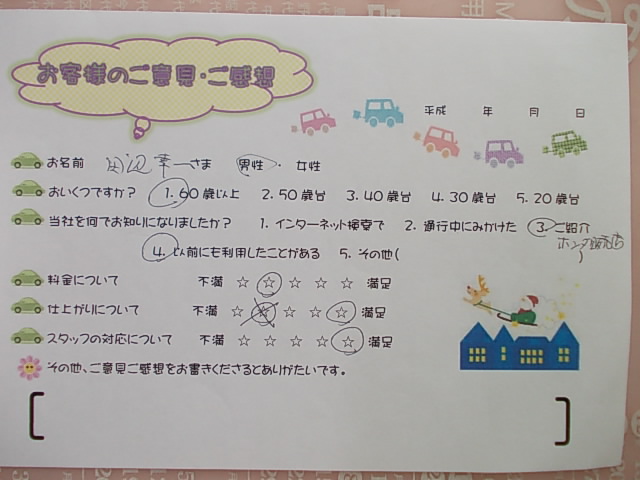 お客様のご意見・ご感想
平成 年 月 日
お名前 田辺 さま 男性・女性
おいくつですか? 1. 60歳以上 2. 50歳台 3. 40歳台 4. 30歳台 5. 20歳台
当社を何でお知りになりましたか? 1. インターネット検索で 2. 通行中にみかけた 3. ご紹介
ホンダ販売店
4. 以前にも利用したことがある 5. その他( )
料金について 不満 ☆ ☆ ☆ ☆ ☆ 満足
仕上がりについて 不満 ☆ ☆ ☆ ☆ ☆ 満足
スタッフの対応について 不満 ☆ ☆ ☆ ☆ ☆ 満足
その他、ご意見ご感想をお書きくださるとありがたいです。